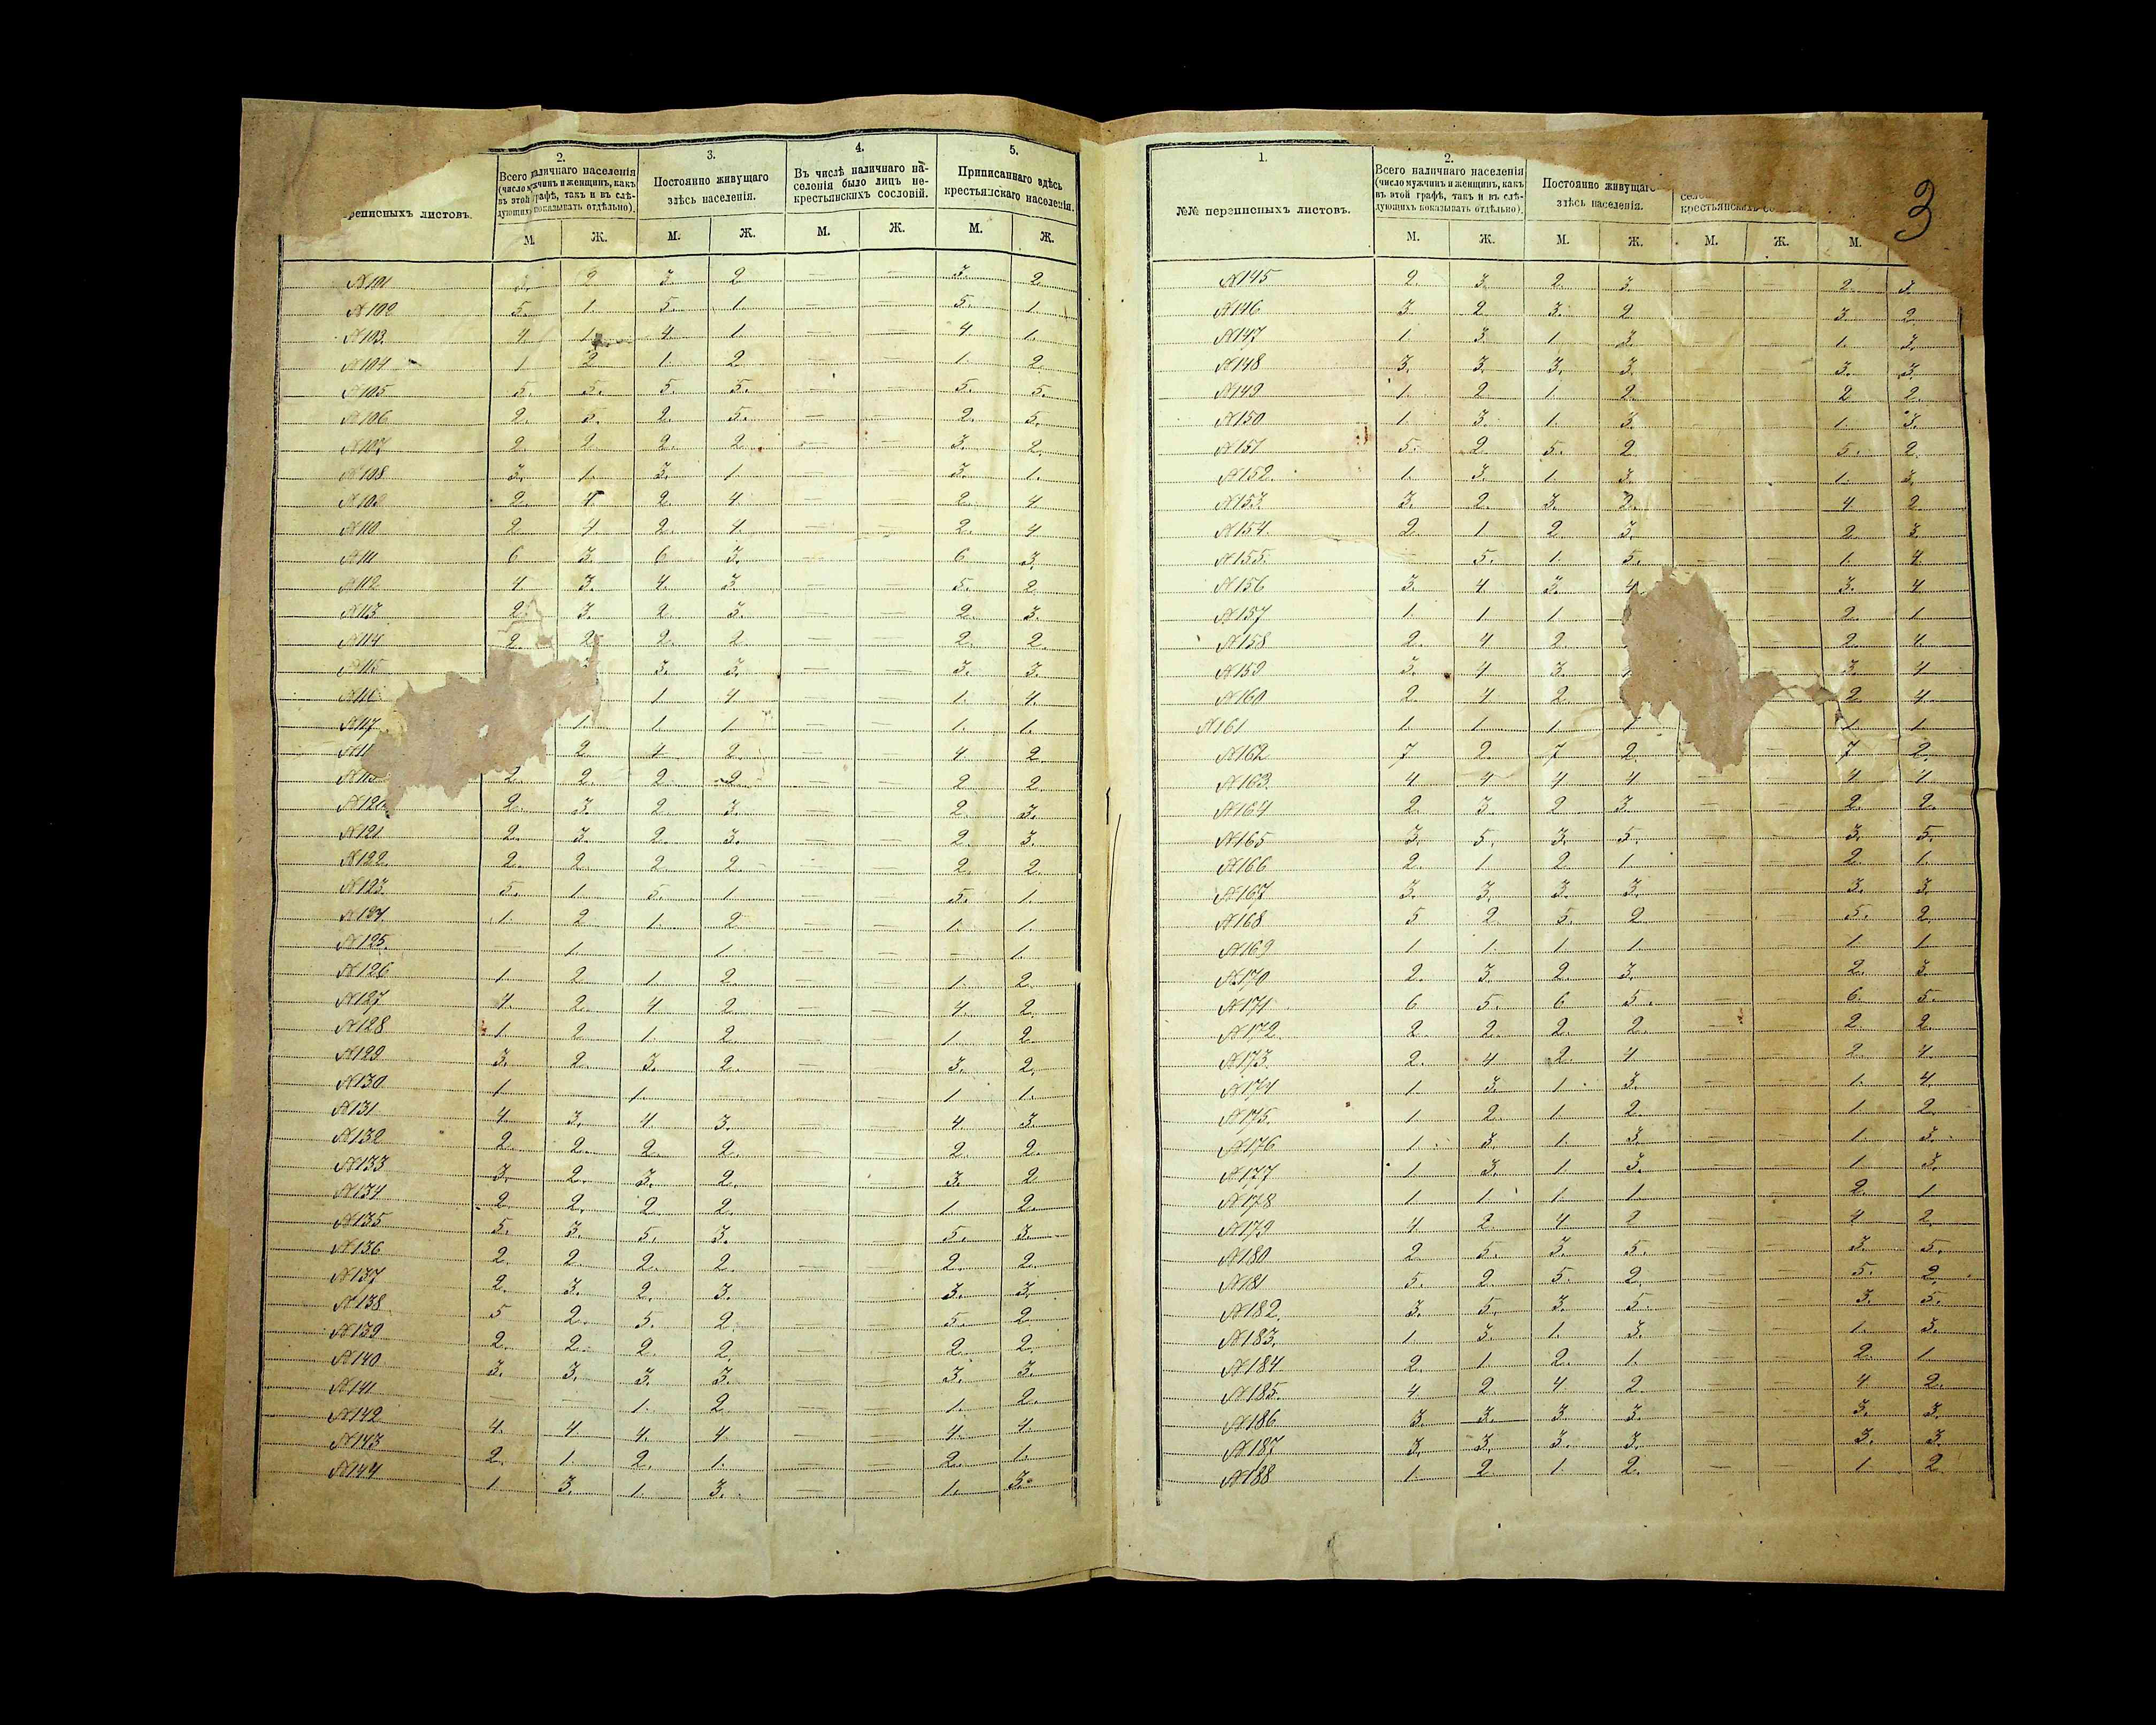 2. 3. 4. 5.
Всего наличнаго населенія (число мужчинъ и женщинъ, какъ въ этой графѣ, такъ и въ слѣдующихъ показывать отдѣльно).
Постоянно живущаго здѣсь населенія.
Въ числѣ наличнаго населенія было лицъ не-крестьянскихъ сословій.
Приписаннаго здѣсь крестьянскаго населенія.
листовъ.
М. Ж. М. Ж. М. Ж. М. Ж.
№101 2 3. 2 — — 3. 2
№102 5. 1. 5. 1. — — 5. 1.
№103. 4. 1. 4 1. — — 4 1.
№104 1 2 1. 2 — — 1. 2
№105 5. 5. 5. 5. — — 5. 5.
№106 2. 5. 2. 5. — — 2. 5.
№107 2. 2 2. 2 — — 3. 2.
№108 3. 1. 3. 1. — — 3. 1.
№109 2. 4. 2. 4. — — 2. 4
№110 2. 4. 2. 4. — — 2. 4
№111 6 3. 6 3. — — 6 3.
№112 4. 3. 4. 3. — — 5. 2
№113 2. 3. 2. 3. — — 2. 3.
№114 2. 2 2. 2. — — 2. 2.
№115 3. 3. — — 3. 3.
№116 1. 4. — — 1. 4.
№117 1. 1. 1. — — 1. 1.
2. 4. 2. — — 4 2
2. 2. 2 2 — — 2 2
№120 2. 3. 2 3. — — 2 3.
№121 2. 3. 2 3. — — 2. 3.
№122. 2. 2. 2 2. — — 2 2.
№123. 5. 1. 5. 1 — — 5. 1.
№124. 1. 2 1. 2 — — 1. 1.
№125. — 1. — 1. — — — 1.
№126 1. 2 1. 2. — — 1. 2.
№127 4. 2. 4 2 — — 4. 2.
№128 1. 2 1. 2. — — 1. 2.
№129 3. 2. 3. 2. — — 3. 2.
№130 1 1. — — 1 1.
№131 4. 3. 4 3. — — 4 3.
№132 2. 2. 2. 2. — — 2. 2.
№133 3. 2. 3. 2. — — 3. 2
№134 2 2. 2 2. — — 1. 2.
№135 5. 3. 5. 3. — — 5. 3.
№136 2. 2 2. 2. — — 2. 2.
№137 2. 3. 2. 3. — — 3. 3.
№138 5 2. 5. 2. — — 5. 2
№139 2. 2. 2. 2. — — 2. 2.
№140 3. 3. 3. 3. — — 3. 3.
№141 — — 1. 2. — — 1. 2.
№142 4. 4 4. 4 — — 4. 4.
№143 2. 1. 2. 1. — — 2. 1.
№144 1 3. 1. 3. — — 1. 3.
3
1. 2.
№№ переписныхъ листовъ.
Всего наличнаго населенія (число мужчинъ и женщинъ, какъ въ этой графѣ, такъ и въ слѣдующихъ показывать отдѣльно).
Постоянно живущаго здѣсь населенія.
крестьянскихъ
М. Ж. М. Ж. М. Ж. М.
№145 2. 3. 2. 3. — — 2. 3.
№146 3. 2 3. 2 — — 3. 2
№147 1. 3. 1 3. — — 1. 3.
№148 3. 3. 3. 3. — — 3. 3.
№149 1. 2 1. 2 — — 2 2.
№150 1. 3. 1. 3. — — 1. 3.
№151 5. 2 5. 2 — — 5. 2.
№152. 1. 3. 1. 3. — — 1. 3.
№153. 3. 2. 3. 2. — — 4. 2
№154. 2. 1 2 3. — — 2. 3.
№155. — 5. 1. 5. — — 1. 4.
№156 3. 4. 3. 4 — 3. 4
№157 1. 1. 1 — 2. 1
№158 2. 4 2. — 2. 4.
№159 3. 4 3. 3. 4
№160 2. 4 2. 2. 4.
№161 1. 1. 1. 1 — 1. 1.
№162 7 2. 7 2. — 7 2.
№163. 4 4 4 4 — — 4 4
№164 2. 3. 2 3. — — 2. 2.
№165 3. 5. 3. 5. — — 3. 5.
№166 2. 1 2 1. — — 2. 1.
№167 3. 3. 3. 3. — — 3. 3.
№168 5 2. 5. 2 — — 5. 2.
№169 1. 1. 1. 1. — — 1. 1
№170 2. 3. 2. 3. — — 2. 3.
№171 6 5. 6 5. — — 6. 5.
№172. 2. 2. 2. 2. — — 2. 2.
№173. 2. 4 2. 4 — — 2. 4.
№174 1. 3. 1. 3. — — 1. 4.
№175. 1. 2. 1 2. — — 1. 2.
№176 1. 3. 1. 3. — — 1. 3.
№177 1. 3. 1. 3. — — 1 3.
№178 1. 1. 1. 1. — — 2. 1
№179 4. 2. 4. 2 — — 4 2.
№180 2. 5. 3. 5. — — 3. 5.
№181 5. 2 5. 2. — — 5. 2.
№182. 3. 5. 3. 5. — — 3. 5.
№183. 1. 3. 1. 3. — — 1. 3.
№184 2. 1 2. 1. — — 2. 1
№185. 4 2 4 2. — — 4. 2.
№186 3. 3. 3. 3. — — 3. 3.
№187 3. 3. 3. 3. — — 3. 3.
№188 1. 2. 1 2. — — 1. 2